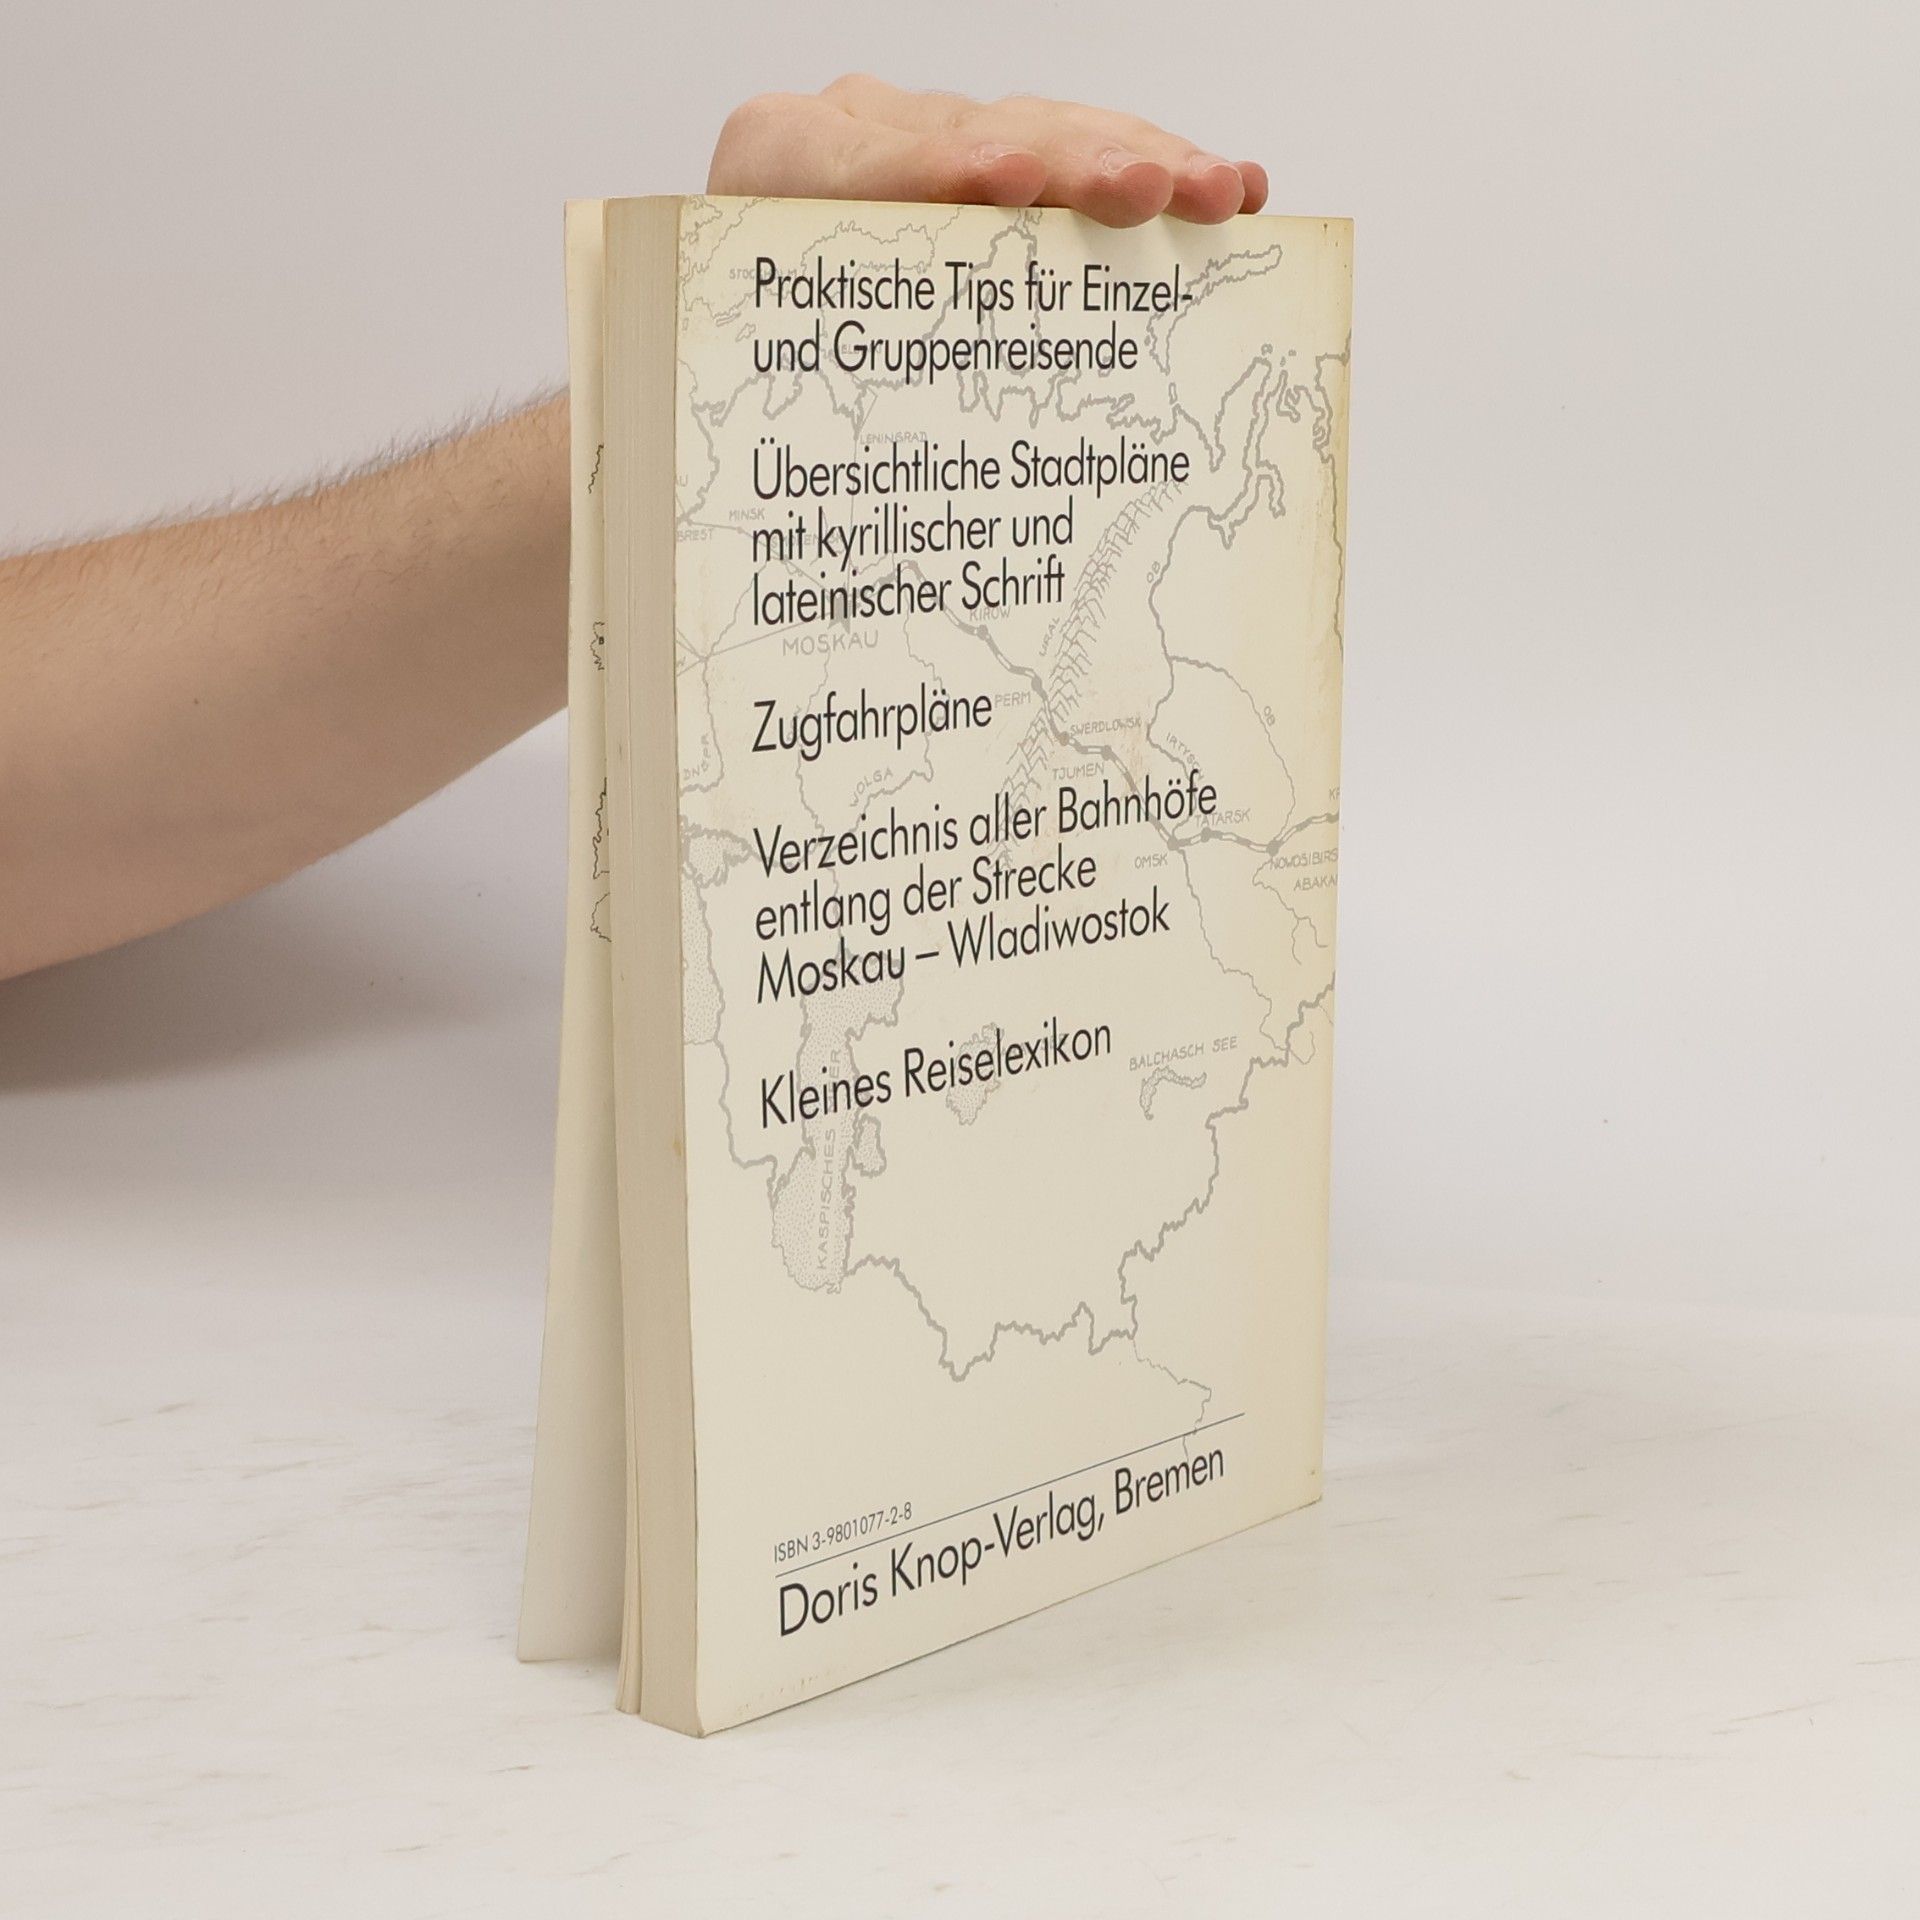 Praktische Tips für Einzel-
und Gruppenreisende
Übersichtliche Stadtpläne
mit kyrillischer und
lateinischer Schrift
Zugfahrpläne
Verzeichnis aller Bahnhöfe
entlang der Strecke
Moskau – Wladiwostok
Kleines Reiselexikon
STOCKHOLM
LENINGRAD
MINSK
BREST
KIROW
MOSKAU
URAL
OB
PERM
SWERDLOWSK
OB
IRTYSCH
DNJPR
WOLGA
TJUMEN
TATARSK
OMSK
NOWOSIBIRS
ABAKA
BALCHASCH SEE
KASPISCHES MEER
ISBN 3-9801077-2-8
Doris Knop-Verlag, Bremen